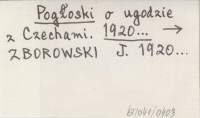 Pogłoski o ugodzie
z Czechami. 1920... →
ZBOROWSKI J. 1920...